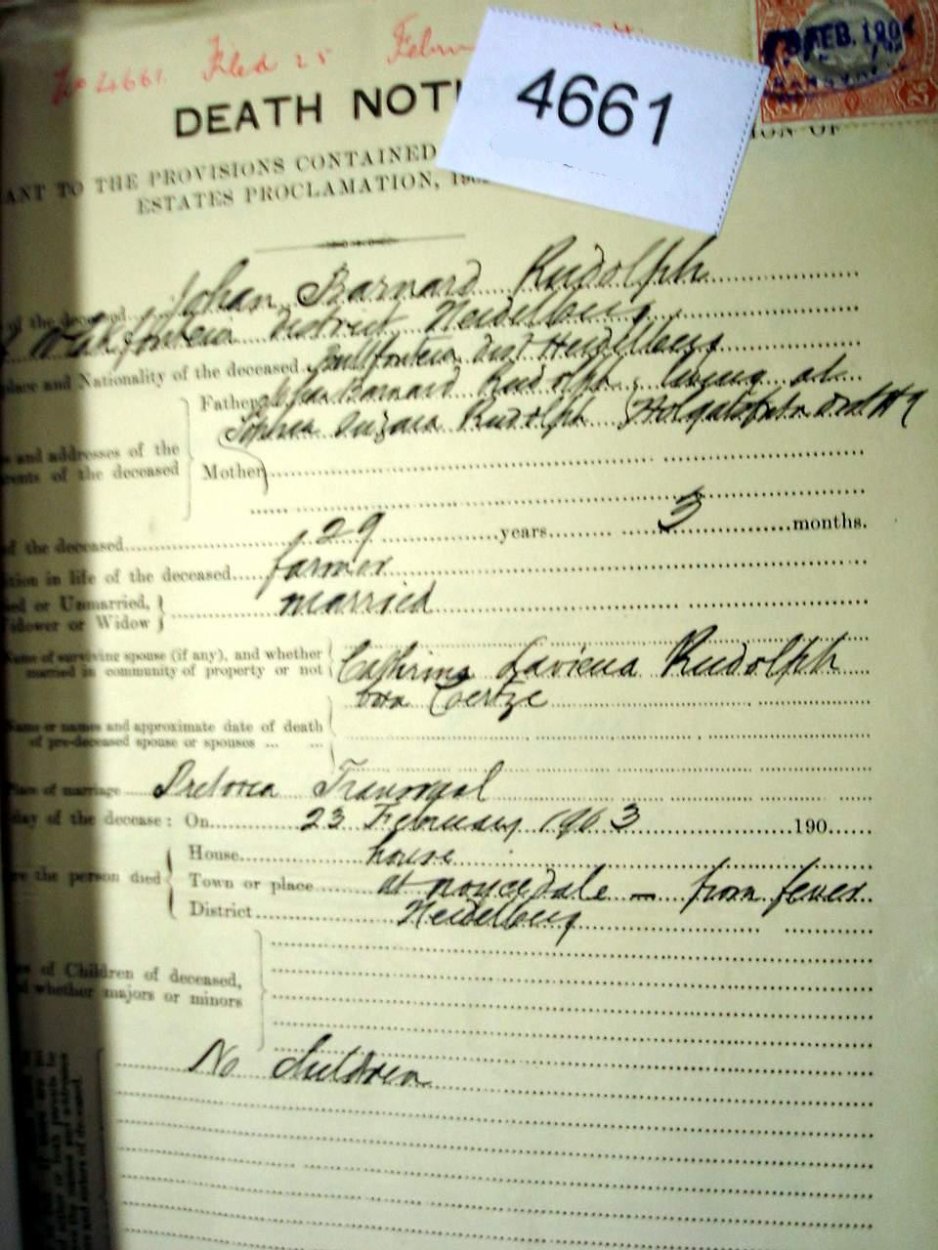 No 4661. Filed 25
4661
FEB. 1904
DEATH NOTI
ANT TO THE PROVISIONS CONTAINED ION OF
ESTATES PROCLAMATION,
of the deceased Johan Barnard Rudolph
District Heidelberg
place and Nationality of the deceased dist Heidelberg
Father Johan Barnard Rudolph living at
Rudolph
s and addresses of the
rents of the deceased
Mother
of the deceased 29 years 3 months.
tion in life of the deceased farmer
ed or Unmarried, married
idower or Widow
Name of surviving spouse (if any), and whether
married in community of property or not
Cathrina Laviena Rudolph
born Coertze
Name or names and approximate date of death
of pre-deceased spouse or spouses ... ...
lace of marriage Pretoria Transvaal
day of the decease: On 23 February 1903 190
re the person died
House house
Town or place at noycedale — from fever
District Heidelberg
es of Children of deceased,
d whether majors or minors
No Children